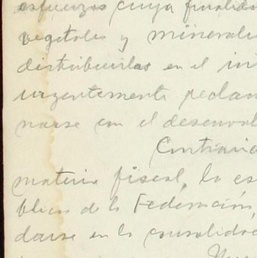 esfuerzos cuya finalida
vegetales y mineral
distribuirlas en el in
urgentemente reclam
narse con el desenvol
Contrario
materia fiscal, la es
blica de la Federación,
darse en la consolidac